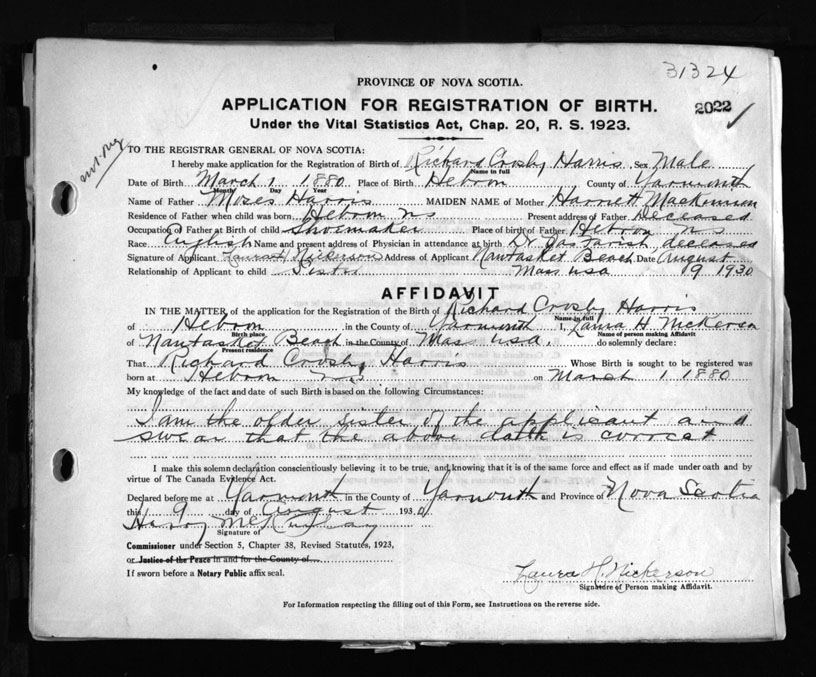 31324
PROVINCE OF NOVA SCOTIA.
APPLICATION FOR REGISTRATION OF BIRTH. 2022
Under the Vital Statistics Act, Chap. 20, R. S. 1923.
TO THE REGISTRAR GENERAL OF NOVA SCOTIA:
I hereby make application for the Registration of Birth of Richard Crosby Harris Sex Male
Name in full
Date of Birth March 1 1880 Place of Birth Hebron County of Yarmouth
Month Day Year
Name of Father Moses Harris MAIDEN NAME of Mother Harriett Mackinnon
Residence of Father when child was born Hebron NS Present address of Father Deceased
Occupation of Father at Birth of child Shoemaker Place of birth of Father Hebron N S
Race English Name and present address of Physician in attendance at birth Dr Jas Farish, deceased
Signature of Applicant Laura H Nickerson Address of Applicant Nantasket Beach Date August
Relationship of Applicant to child Sister Mass USA 9 1930
AFFIDAVIT
IN THE MATTER of the application for the Registration of the Birth of Richard Crosby Harris
Name in full
of Hebron in the County of Yarmouth I, Laura H Nickerson
Birth place Name of person making Affidavit
of Nantasket Beach in the County of Mass USA. do solemnly declare:
Present residence
That Richard Crosby Harris Whose Birth is sought to be registered was
born at Hebron NS on March 1 1880
My knowledge of the fact and date of such Birth is based on the following Circumstances:
I am the older sister of the applicant and
swear that the above date is correct
I make this solemn declaration conscientiously believing it to be true, and knowing that it is of the same force and effect as if made under oath and by
virtue of The Canada Evidence Act.
Declared before me at Yarmouth in the County of Yarmouth and Province of Nova Scotia
this 9 day of August 1930
Harry
Signature of
Commissioner under Section 5, Chapter 38, Revised Statutes, 1923,
or Justice of the Peace in and for the County of
If sworn before a Notary Public affix seal.
Laura H. Nickerson
Signature of Person making Affidavit.
For Information respecting the filling out of this Form, see Instructions on the reverse side.